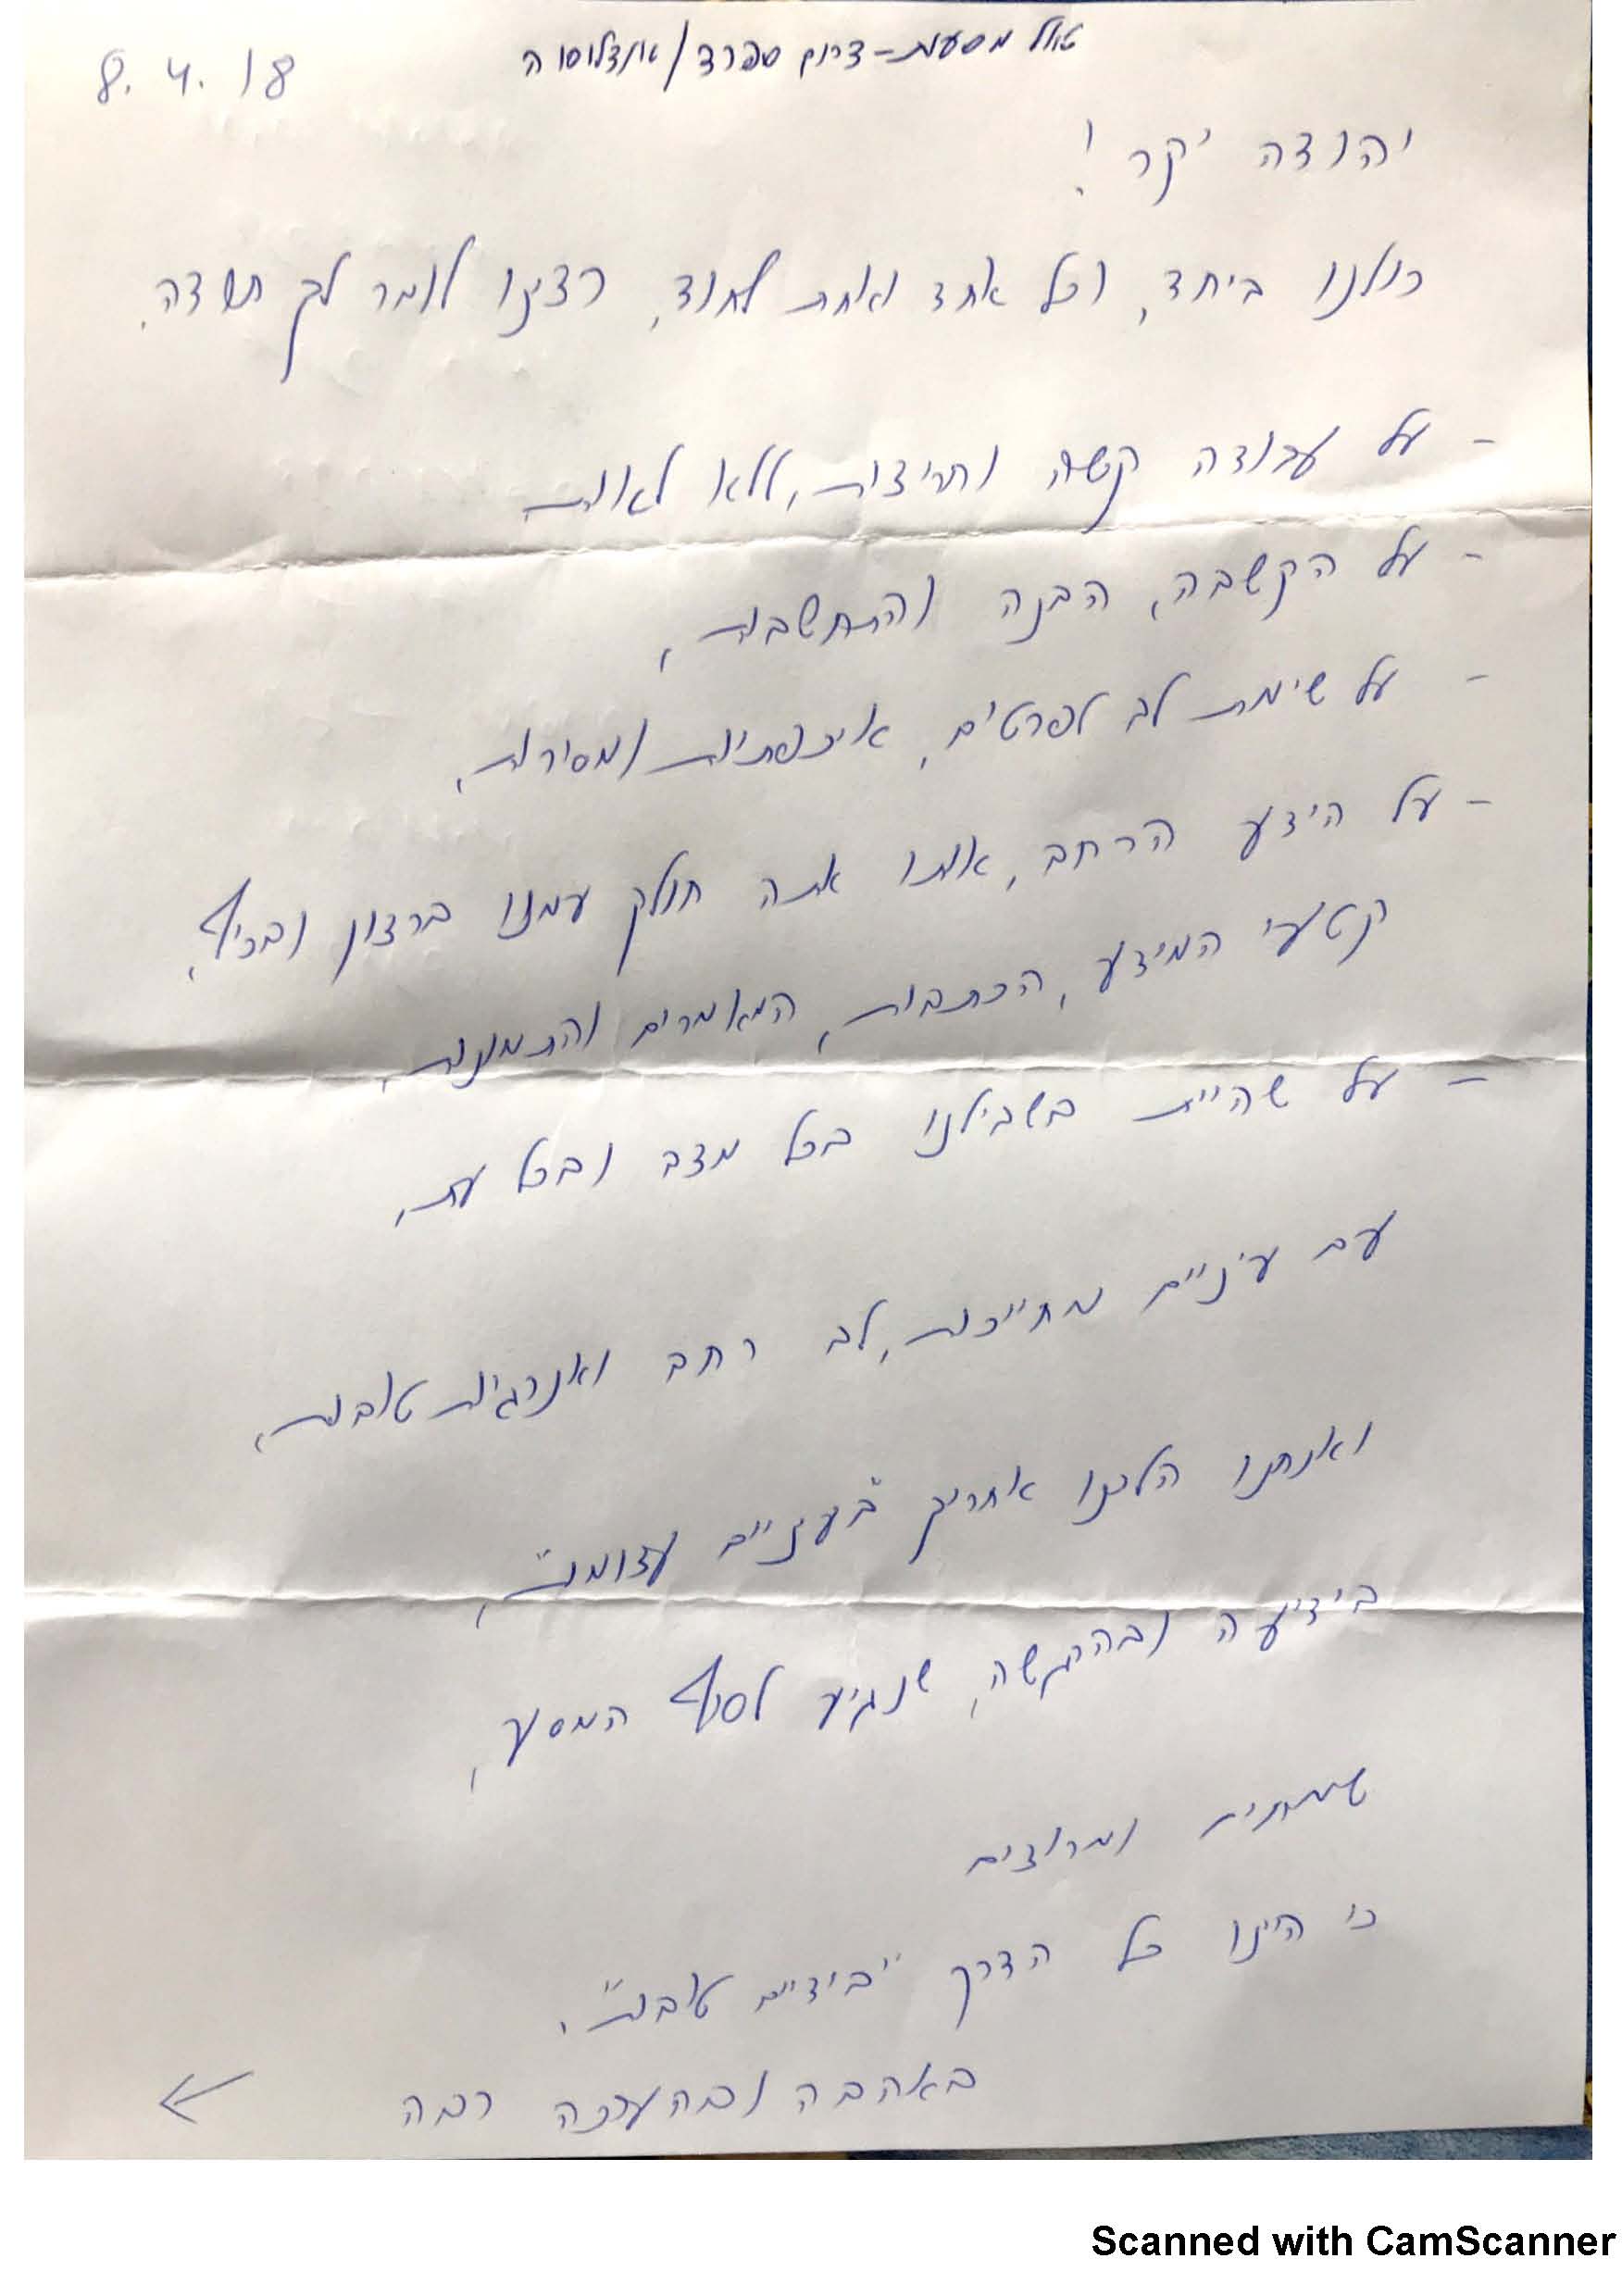 טיול מסעות - דרום ספרד / אנדלוסיה
8.4.18
יהודה יקר!
כולנו ביחד, וכל אחד ואחת לחוד, רצינו לומר לך תודה.
- על עבודה קשה וחריצות, ללא לאות
- על הקשבה, הבנה והתחשבות,
- על שימת לב לפרטים, איכפתיות ומסירות,
- על הידע הרחב, אותו אתה חולק עמנו ברצון ובכיף,
קטעי המידע, הכתבות, המאמרים והתמונות,
- על שהיית בשבילנו בכל מצב ובכל עת,
עם עיניים מחייכות, לב רחב ואנרגיות טובות,
ואנחנו הלכנו אחריך "בעיניים עצומות",
בידיעה ובהרגשה, שנגיע לסוף המסע,
ומרוצים
כי היינו כל הדרך "בידיים טובות".
באהבה ובהערכה רבה
Scanned with CamScanner